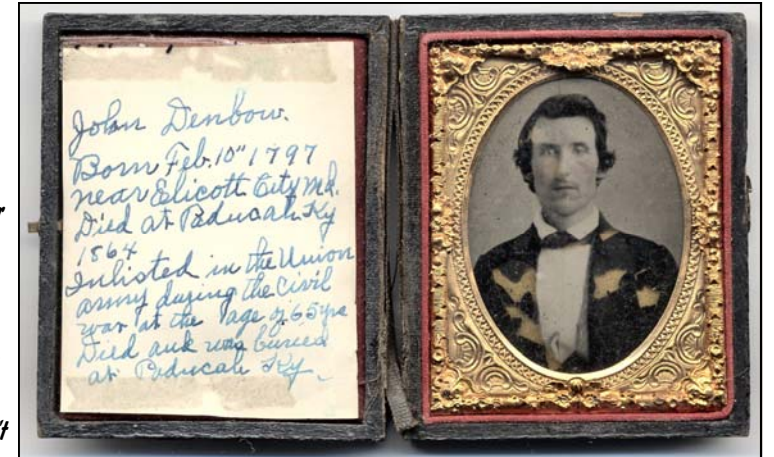 John Denbow.
Born Feb. 10" 1797
near Elicott City Md.
Died at Paducah Ky
1864
Inlisted in the Union
army during the Civil
war at the age of 65 yrs
Died and was buried
at Paducah Ky